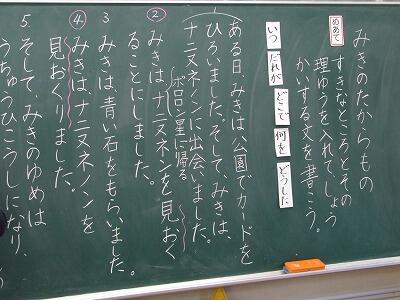 みきのたからもの
めあて
すきなところとその
理ゆうを入れて、しょう
かいする文を書こう。
いつ
だれが
どこで
何を
どうした
1
ある日、みきは、公園でカードを
ひろいました。そして、みきは、
ナニヌネノンに出会いました。
②
ポロロン星に帰る
みきは、ナニヌネノンを見おく
ることにしました。
3
みきは、青い石をもらいました。
④
みきは、ナニヌネノンを
見おくりました。
5
そして、みきのゆめは
うちゅうひこうしになり、